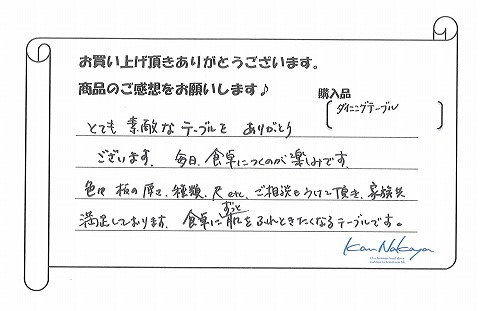 お買い上げ頂きありがとうございます。
商品のご感想をお願いします♪
購入品
ダイニングテーブル
とても 素敵な テーブルを ありがとう
ございます。毎日、食卓につくのが楽しみです。
色や 板の厚さ、種類、尺 etc、ご相談もうけて頂き、家族共
満足しております。食卓に ずっと 肌を ふれときたくなるテーブルです。
Kan Nakaya